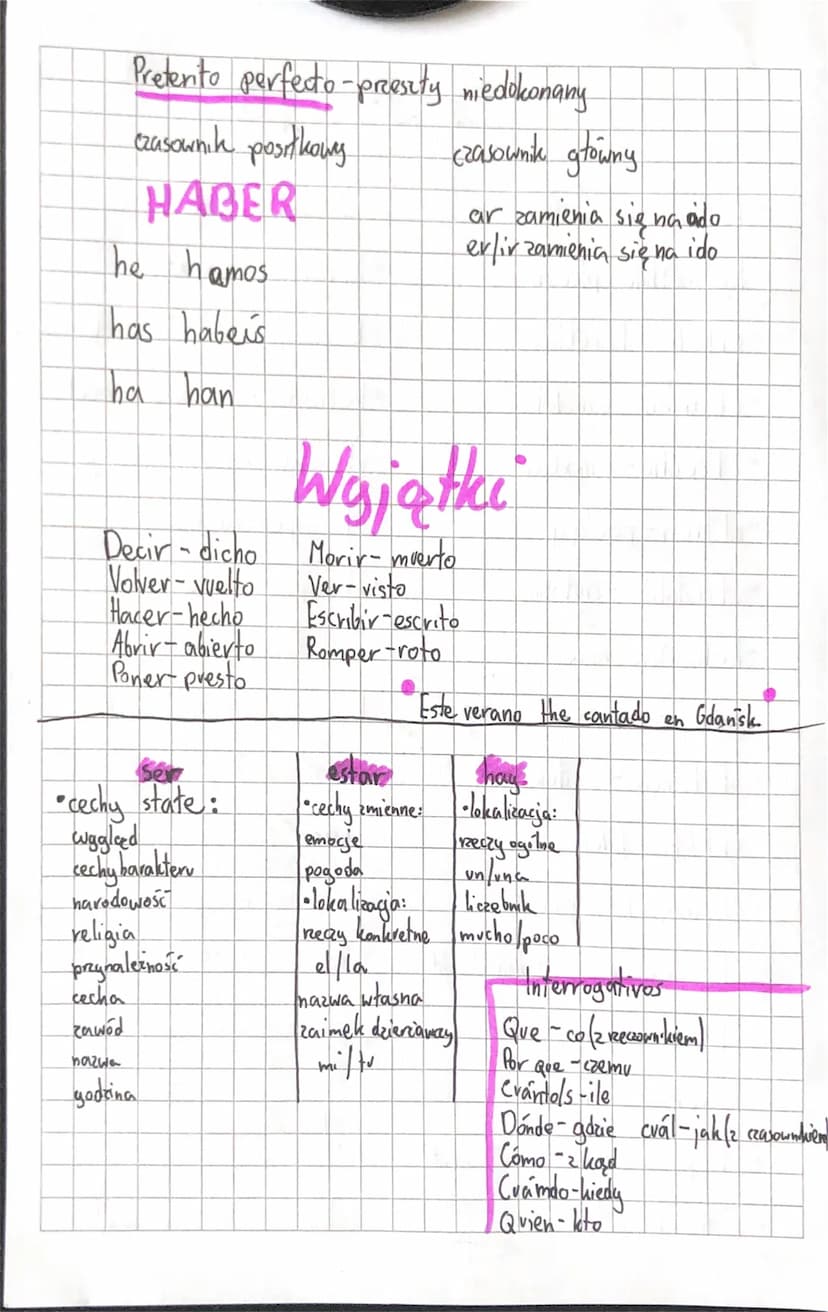 Preterito perfecto - przeszły niedokonany
czasownik posiłkowy
czasownik główny
HABER
ar zamienia się na ado
er/ir zamienia się na ido
he hamos
has habeís
ha han
Wyjątki
Decir - dicho Morir - muerto
Volver - vuelto Ver - visto
Hacer - hecho Escribir - escrito
Abrir - abierto Romper - roto
Poner - puesto
Este verano the cantado en Gdańsk
ser
• cechy stałe:
wygląd
cechy harakteru
narodowość
religia
przynależność
cecha
zawód
nazwa
godzina
estar
• cechy zmienne:
emocje
pogoda
• lokalizacja:
rzeczy konkretne
el/la
nazwa własna
zaimek dzierżawczy
mi/tu
hay
• lokalizacja:
rzeczy ogólne
un/una
liczebnik
mucho/poco
Interrogativos
Que - co (z rzeczownikiem)
Por que - czemu
Cuánto/s - ile
Dónde - gdzie cuál - jak (z czasownikiem
Cómo - z kąd
Cuámdo - kiedy
Quien - kto